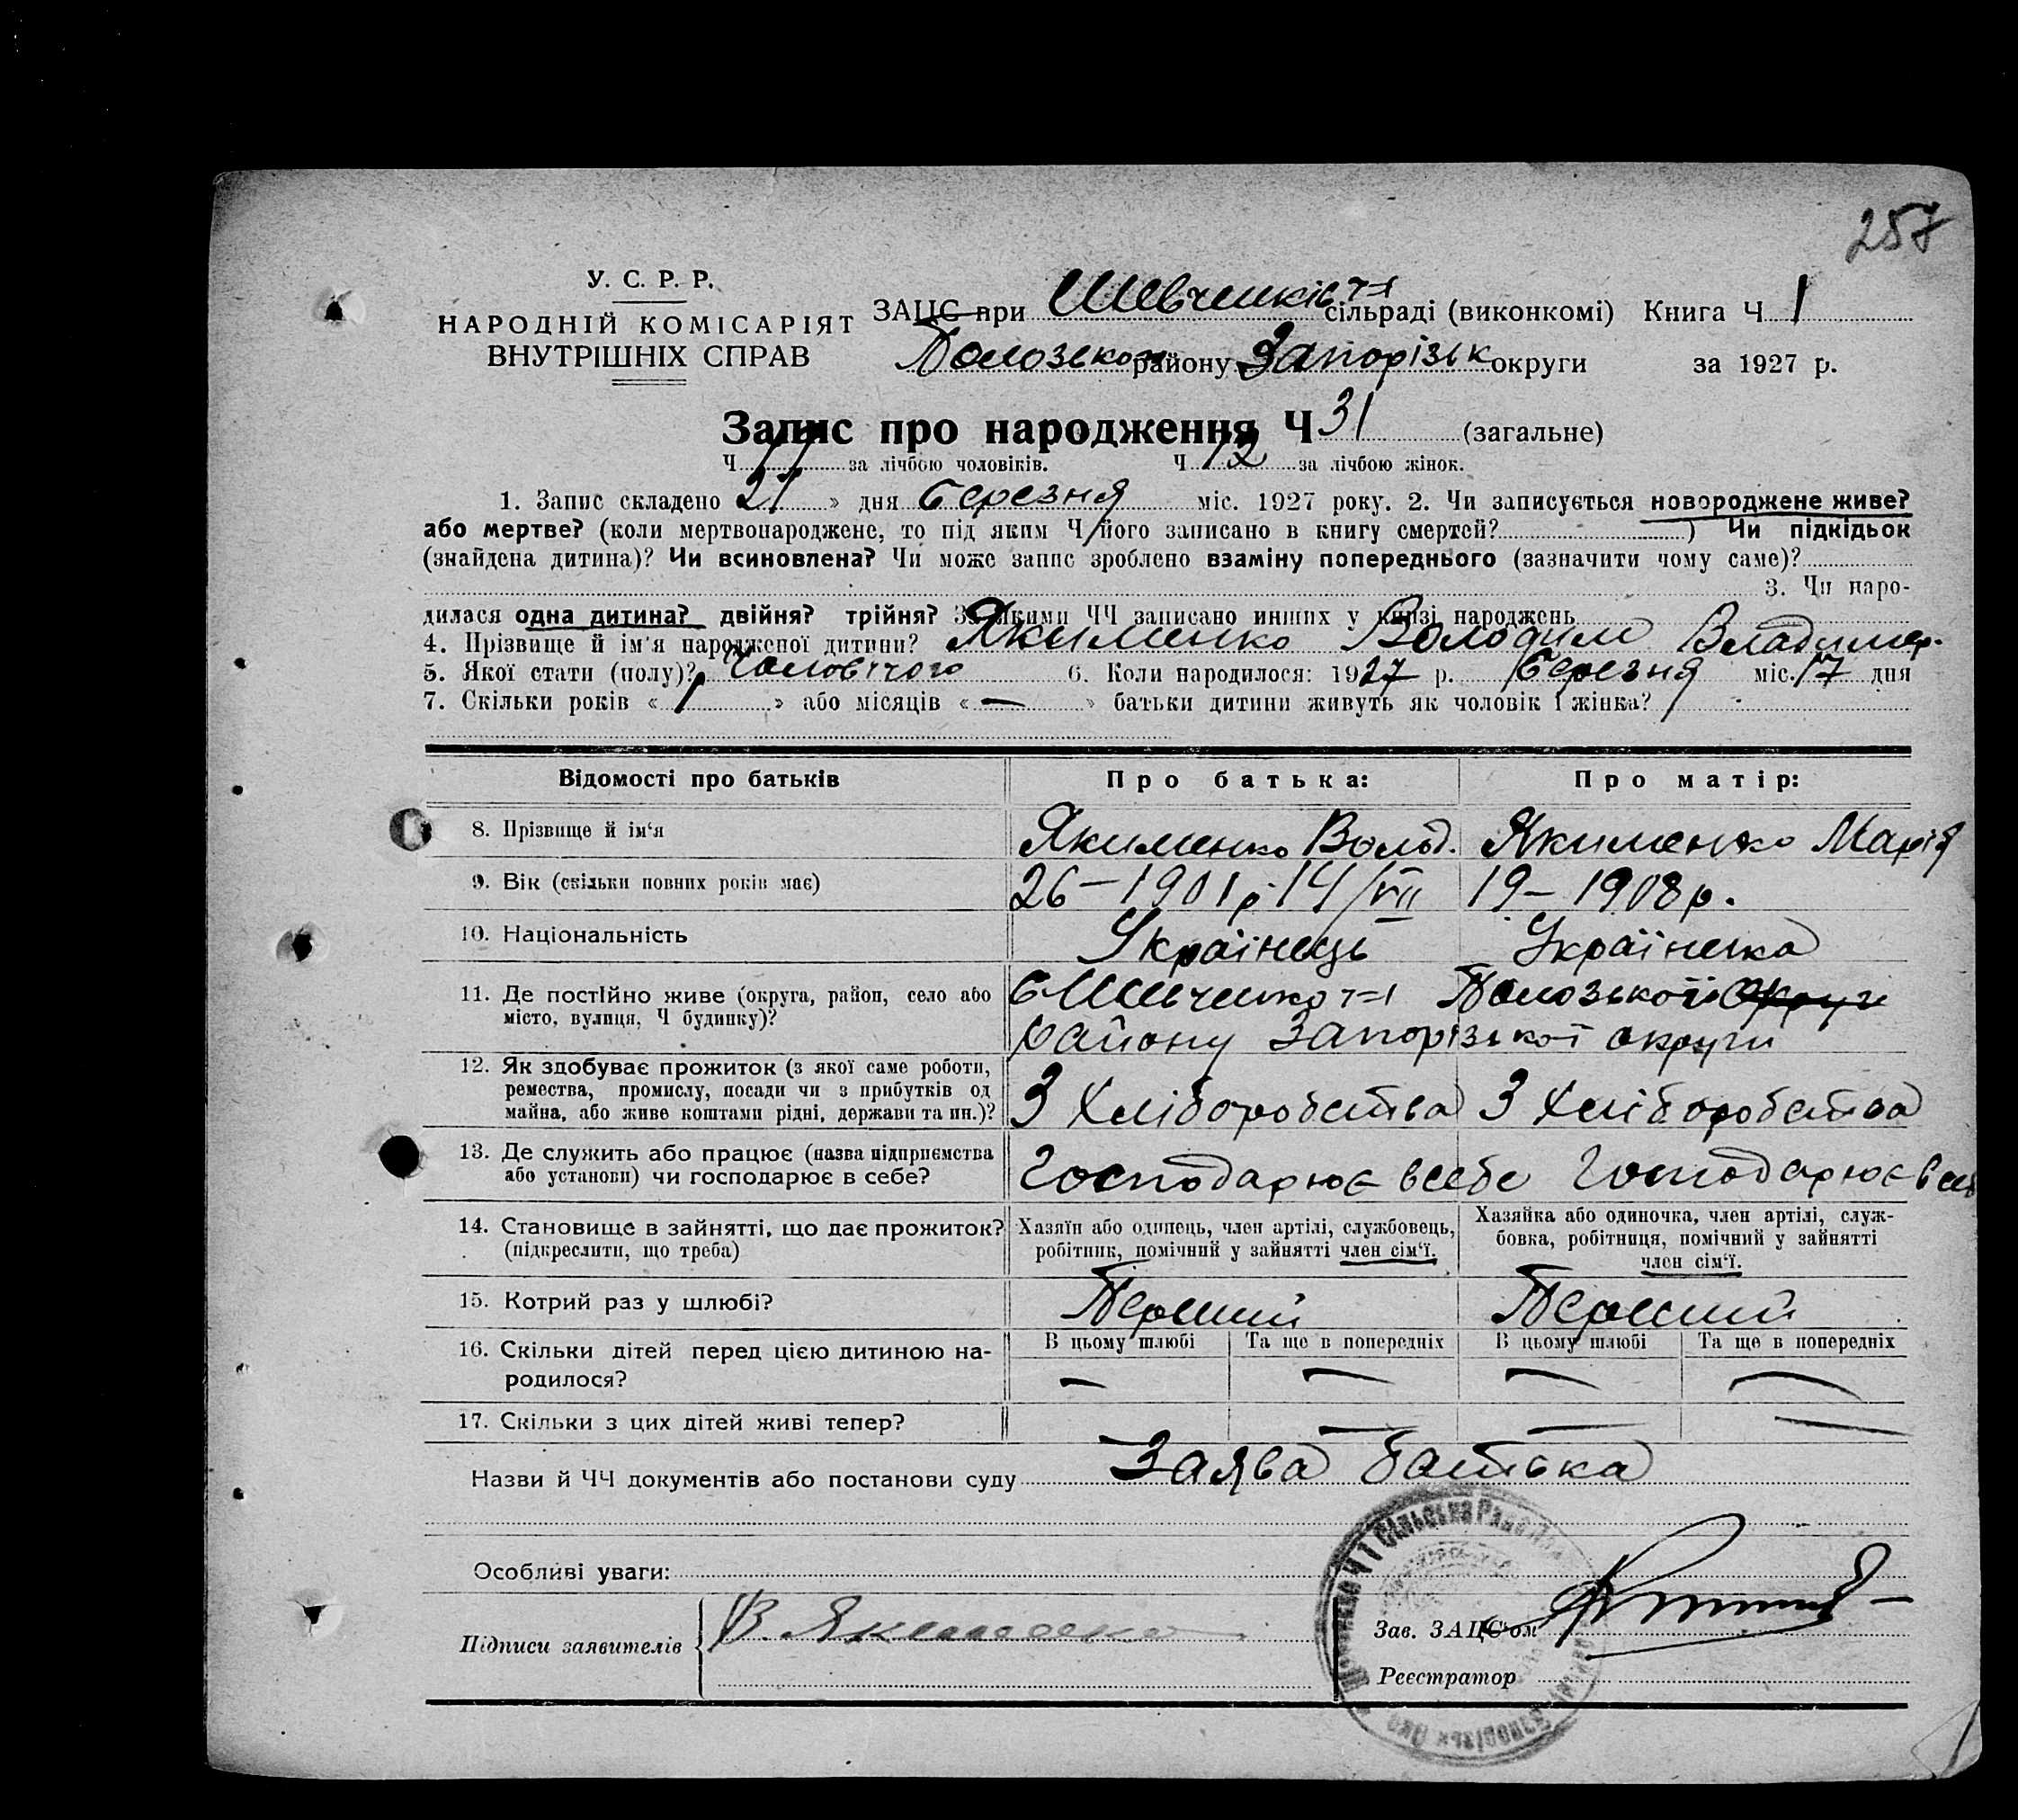 257
У. С. Р. Р.
НАРОДНІЙ КОМІСАРІЯТ
ВНУТРІШНІХ СПРАВ
ЗАЦС при Шевченків ч 1 сільраді (виконкомі) Книга Ч 1
Полозьком району Запорізьк округи за 1927 р.
Запис про народження Ч 31 (загальне)
Ч за лічбою чоловіків. Ч 12 за лічбою жінок.
1. Запис складено 21 » дня березня міс. 1927 року. 2. Чи записується новороджене живе?
або мертве? (коли мертвонароджене, то під яким Ч його записано в книгу смертей? ) Чи підкідьок
(знайдена дитина)? Чи всиновлена? Чи може запис зроблено взаміну попереднього (зазначити чому саме)?
3. Чи наро-
дилася одна дитина? двійня? трійня? За якими ЧЧ записано инших у книзі народжень
4. Прізвище й ім'я народженої дитини? Якименко Володим Владимер.
5. Якої стати (полу)? Чоловічого 6. Коли народилося: 1927 р. березня міс. 17 дня
7. Скільки років « 1 » або місяців « — » батьки дитини живуть як чоловік і жінка?
Відомості про батьків Про батька: Про матір:
8. Прізвище й ім'я Якименко Волод. Якименко Марія
9. Вік (скільки повних років має) 26 — 1901 р 14/VII 19 — 1908 р.
10. Національність Українець Українка
11. Де постійно живе (округа, район, село або
місто, вулиця, Ч будинку)?
с Шевченко ч 1 Полозької округи
району Запорізької округи
12. Як здобуває прожиток (з якої саме роботи,
ремества, промислу, посади чи з прибутків од
майна, або живе коштами рідні, держави та ин.)?
З хліборобства З хліборобства
13. Де служить або працює (назва підприємства
або установи) чи господарює в себе?
Господарює в себе Господарює в себ
14. Становище в зайнятті, що дає прожиток?
(підкреслити, що треба)
Хазяїн або одинець, член артілі, службовець,
робітник, помічний у зайнятті член сім'ї.
Хазяйка або одиночка, член артілі, служ-
бовка, робітниця, помічний у зайнятті
член сім'ї.
15. Котрий раз у шлюбі? Перший Перший
16. Скільки дітей перед цією дитиною на-
родилося?
В цьому шлюбі Та ще в попередніх В цьому шлюбі Та ще в попередніх
— — — —
17. Скільки з цих дітей живі тепер? — — — —
Назви й ЧЧ документів або постанови суду Заява батька
Особливі уваги:
Підписи заявителів В. Якименко
Зав. ЗАЦС'ом
Реєстратор
Сільська Рада